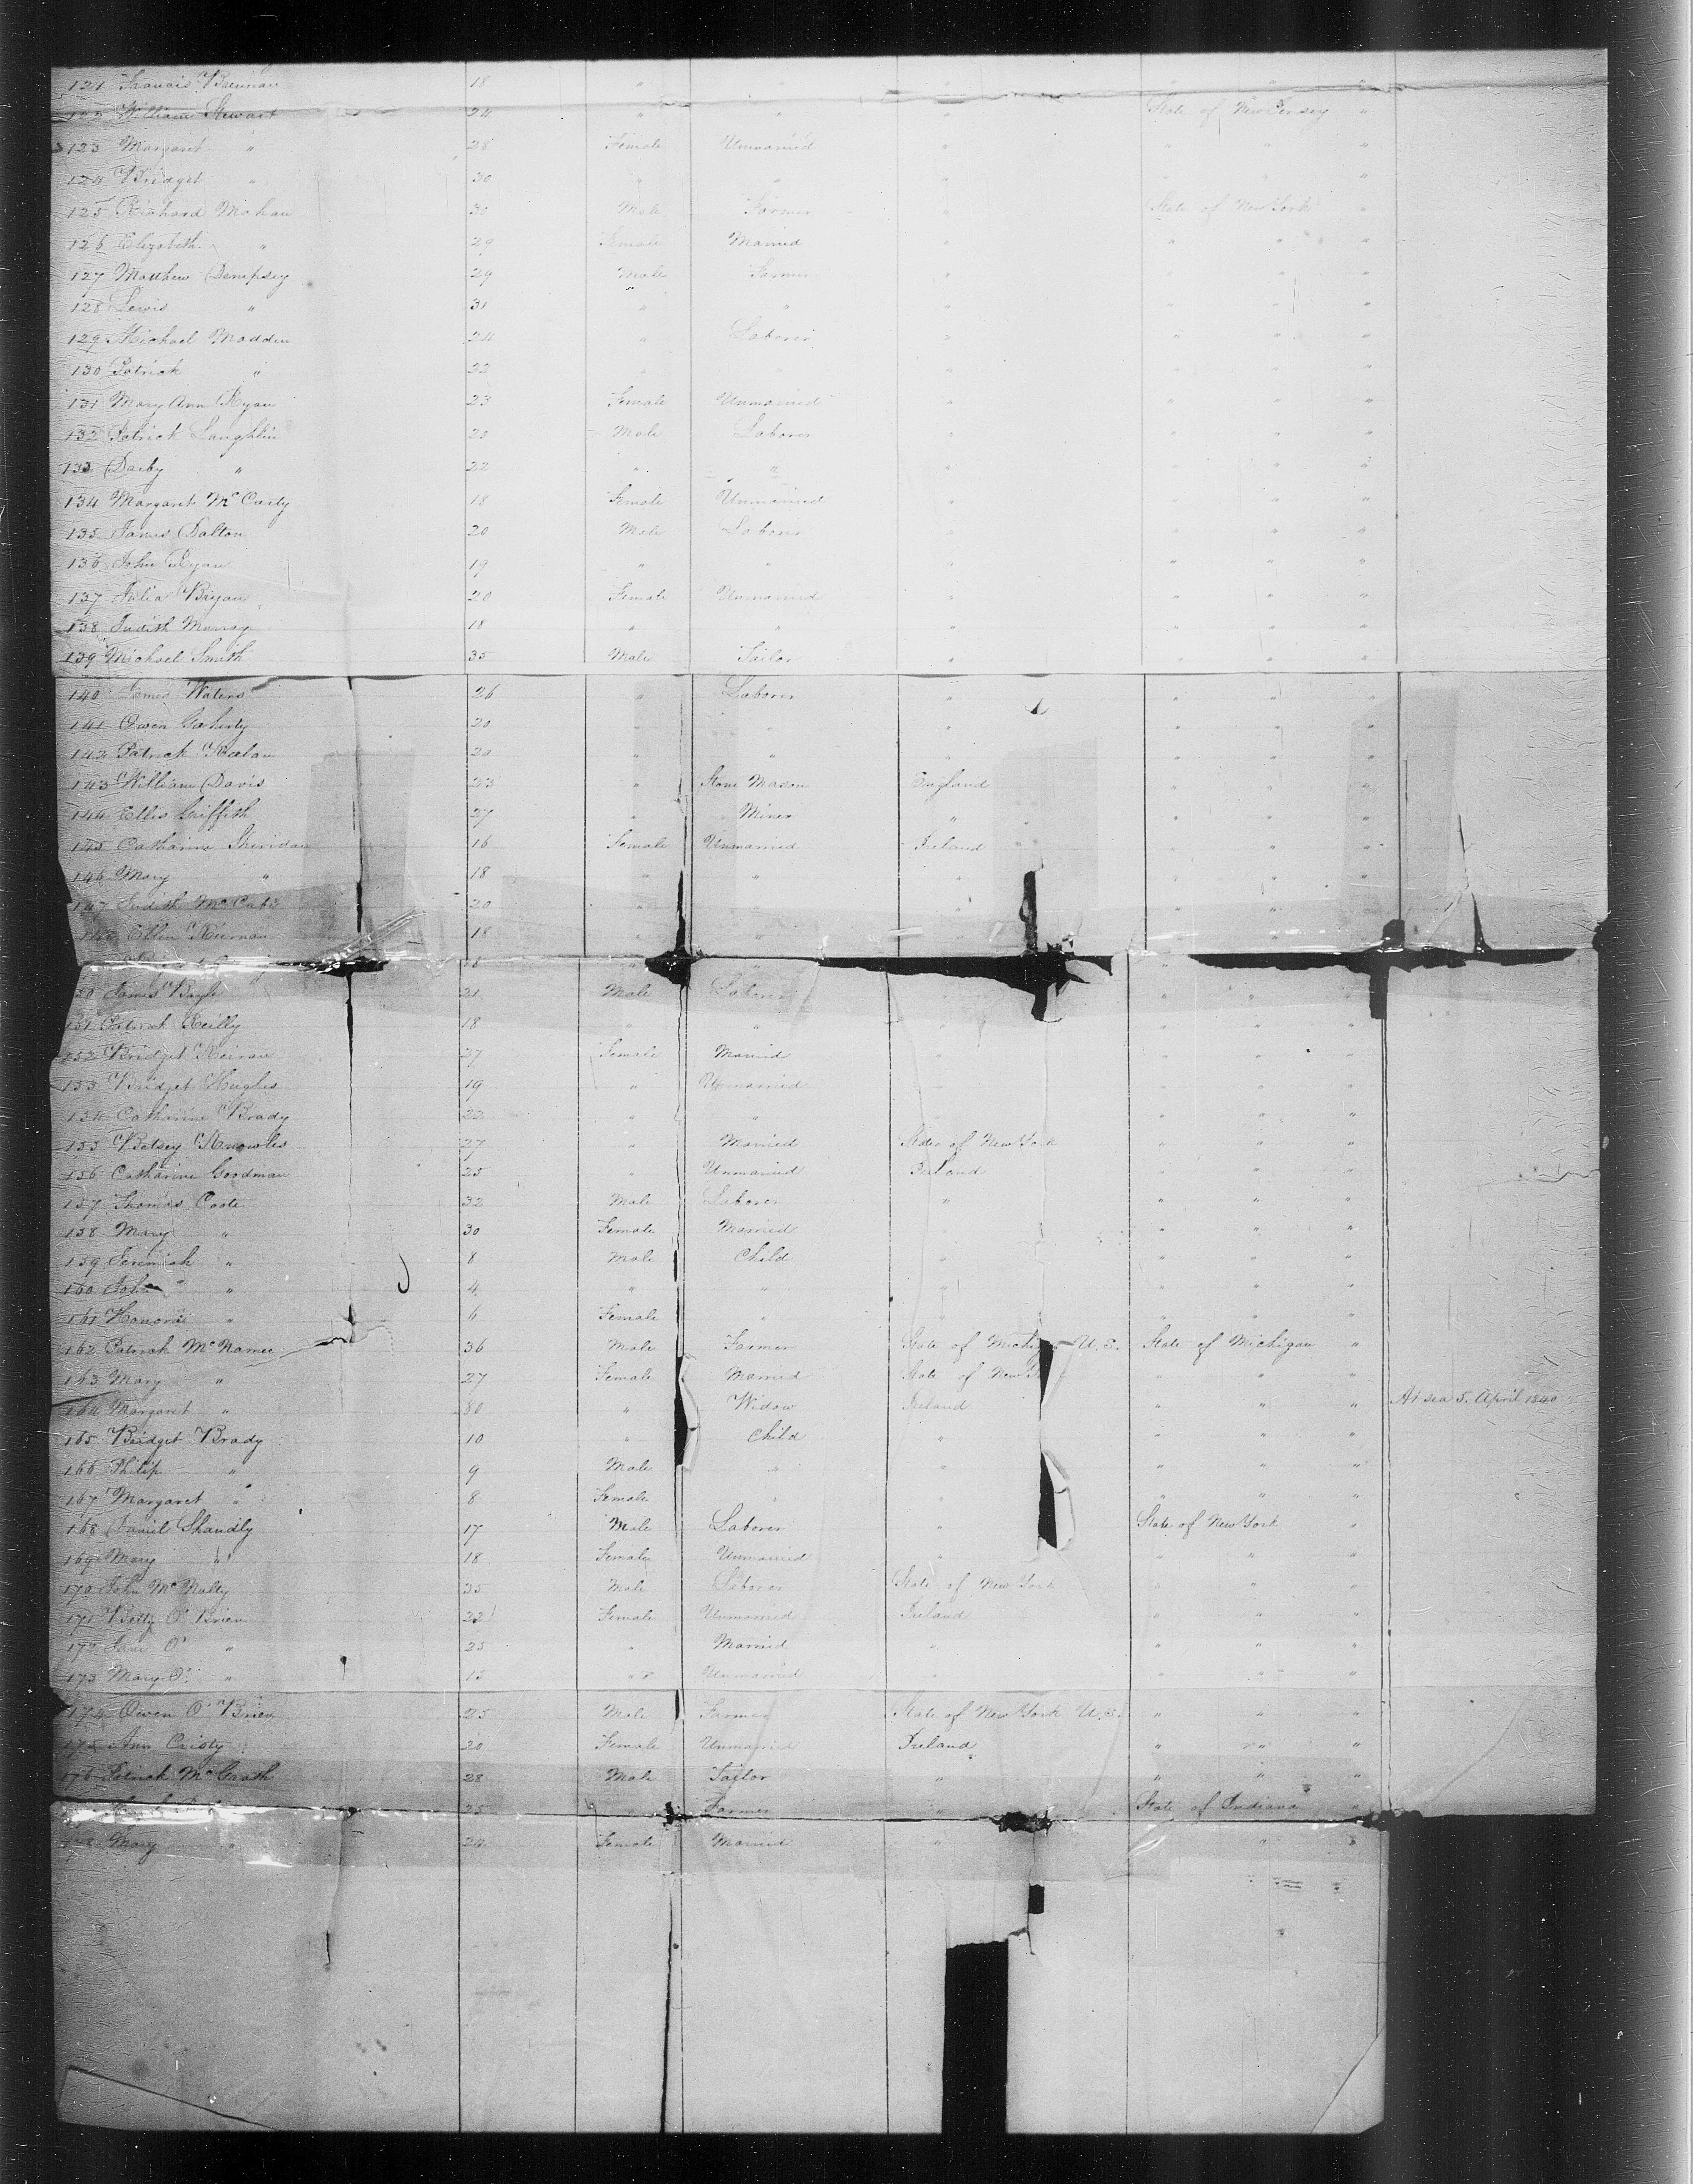 121 Francis Brennan 18 " " " " " "
122 William Stewart 24 " " " State of New Jersey "
123 Margaret " 28 Female Unmarried " " " "
124 Bridget " 30 " " " " " "
125 Richard Mohan 30 Male Farmer " State of New York "
126 Elizabeth " 29 Female Married " " " "
127 Matthew Dempsey 29 Male Farmer " " " "
128 Lewis " 31 " " " " " "
129 Michael Madden 24 " Laborer " " " "
130 Patrick " 22 " " " " " "
131 Mary Ann Ryan 23 Female Unmarried " " " "
132 Patrick Laughlin 20 Male Laborer " " " "
133 Darby " 22 " " " " " "
134 Margaret McCarty 18 Female Unmarried " " " "
135 James Dalton 20 Male Laborer " " " "
136 John Ryan 19 " " " " " "
137 Julia Bryan 20 Female Unmarried " " " "
138 Judith Murray 18 " " " " " "
139 Michael Smith 35 Male Tailor " " " "
140 James Waters 26 " Laborer " " " "
141 Owen Gaherty 20 " " " " " "
142 Patrick 20 " " " " " "
143 William Davis 23 " Stone Mason England " " "
144 Ellis Griffith 27 " Miner " " " "
145 Catharine Sheridan 16 Female Unmarried Ireland " " "
146 Mary " 18 " " " " " "
147 Judith McCabe 20 " " " " "
148 Ellen Kiernan 18 " " " " "
18 " "
150 James Boyle 21 Male Laborer " " "
151 Patrick Reilly 18 " " " " "
152 Bridget Keiran 27 Female Married " " " "
153 Bridget Hughes 19 " Unmarried " " " "
154 Catharine Brady 22 " " " " "
155 Betsey Knowles 27 " Married State of New York " " "
156 Catharine Goodman 25 " Unmarried Ireland " " "
157 Thomas Coote 32 Male Laborer " " " "
158 Mary " 30 Female Married " " " "
159 Jeremiah " 8 Male Child " " " "
160 John " 4 " " " " " "
161 Honora " 6 Female " " " " "
162 Patrick McNamee 36 Male Farmer State of Michi U.S. State of Michigan "
163 Mary " 27 Female Married State of New " " "
164 Margaret " 80 " Widow Ireland " " " At sea 5. April 1840
165 Bridget Brady 10 " Child " " " "
166 Philip " 9 Male " " " " "
167 Margaret " 8 Female " " " " "
168 Daniel Shandly 17 Male Laborer " State of New York "
169 Mary " 18 Female Unmarried " " " "
170 John McNalty 35 Male Laborer State of New York " " "
171 Betty O'Brien 22 Female Unmarried Ireland " " "
172 Jane O' " 25 " Married " " " "
173 Mary O' " 15 " Unmarried " " " "
174 Owen O'Brien 25 Male Farmer State of New York U.S. " " "
175 Ann Cristy 20 Female Unmarried Ireland " " "
176 Patrick McGrath 28 Male Tailor " " " "
25 Farmer " State of Indiana "
178 Mary " 24 Female Married " " "